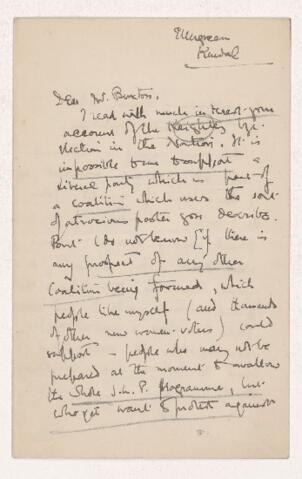 Evergreen
Kendal
Dear Mr. Buxton,
I read with much interest your
account of the Keighley bye-
election in the Nation. It is
impossible to me to support a
liberal party which is part of
a coalition which uses the sort
of atrocious poster you describe.
But I do not know [if there is
any prospect of any other
Coalition being formed, which
people like myself (and thousands
of other new women-voters) could
support - people who may not be
prepared at the moment to swallow
the whole I.L.P. programme, but
who yet want to protest against